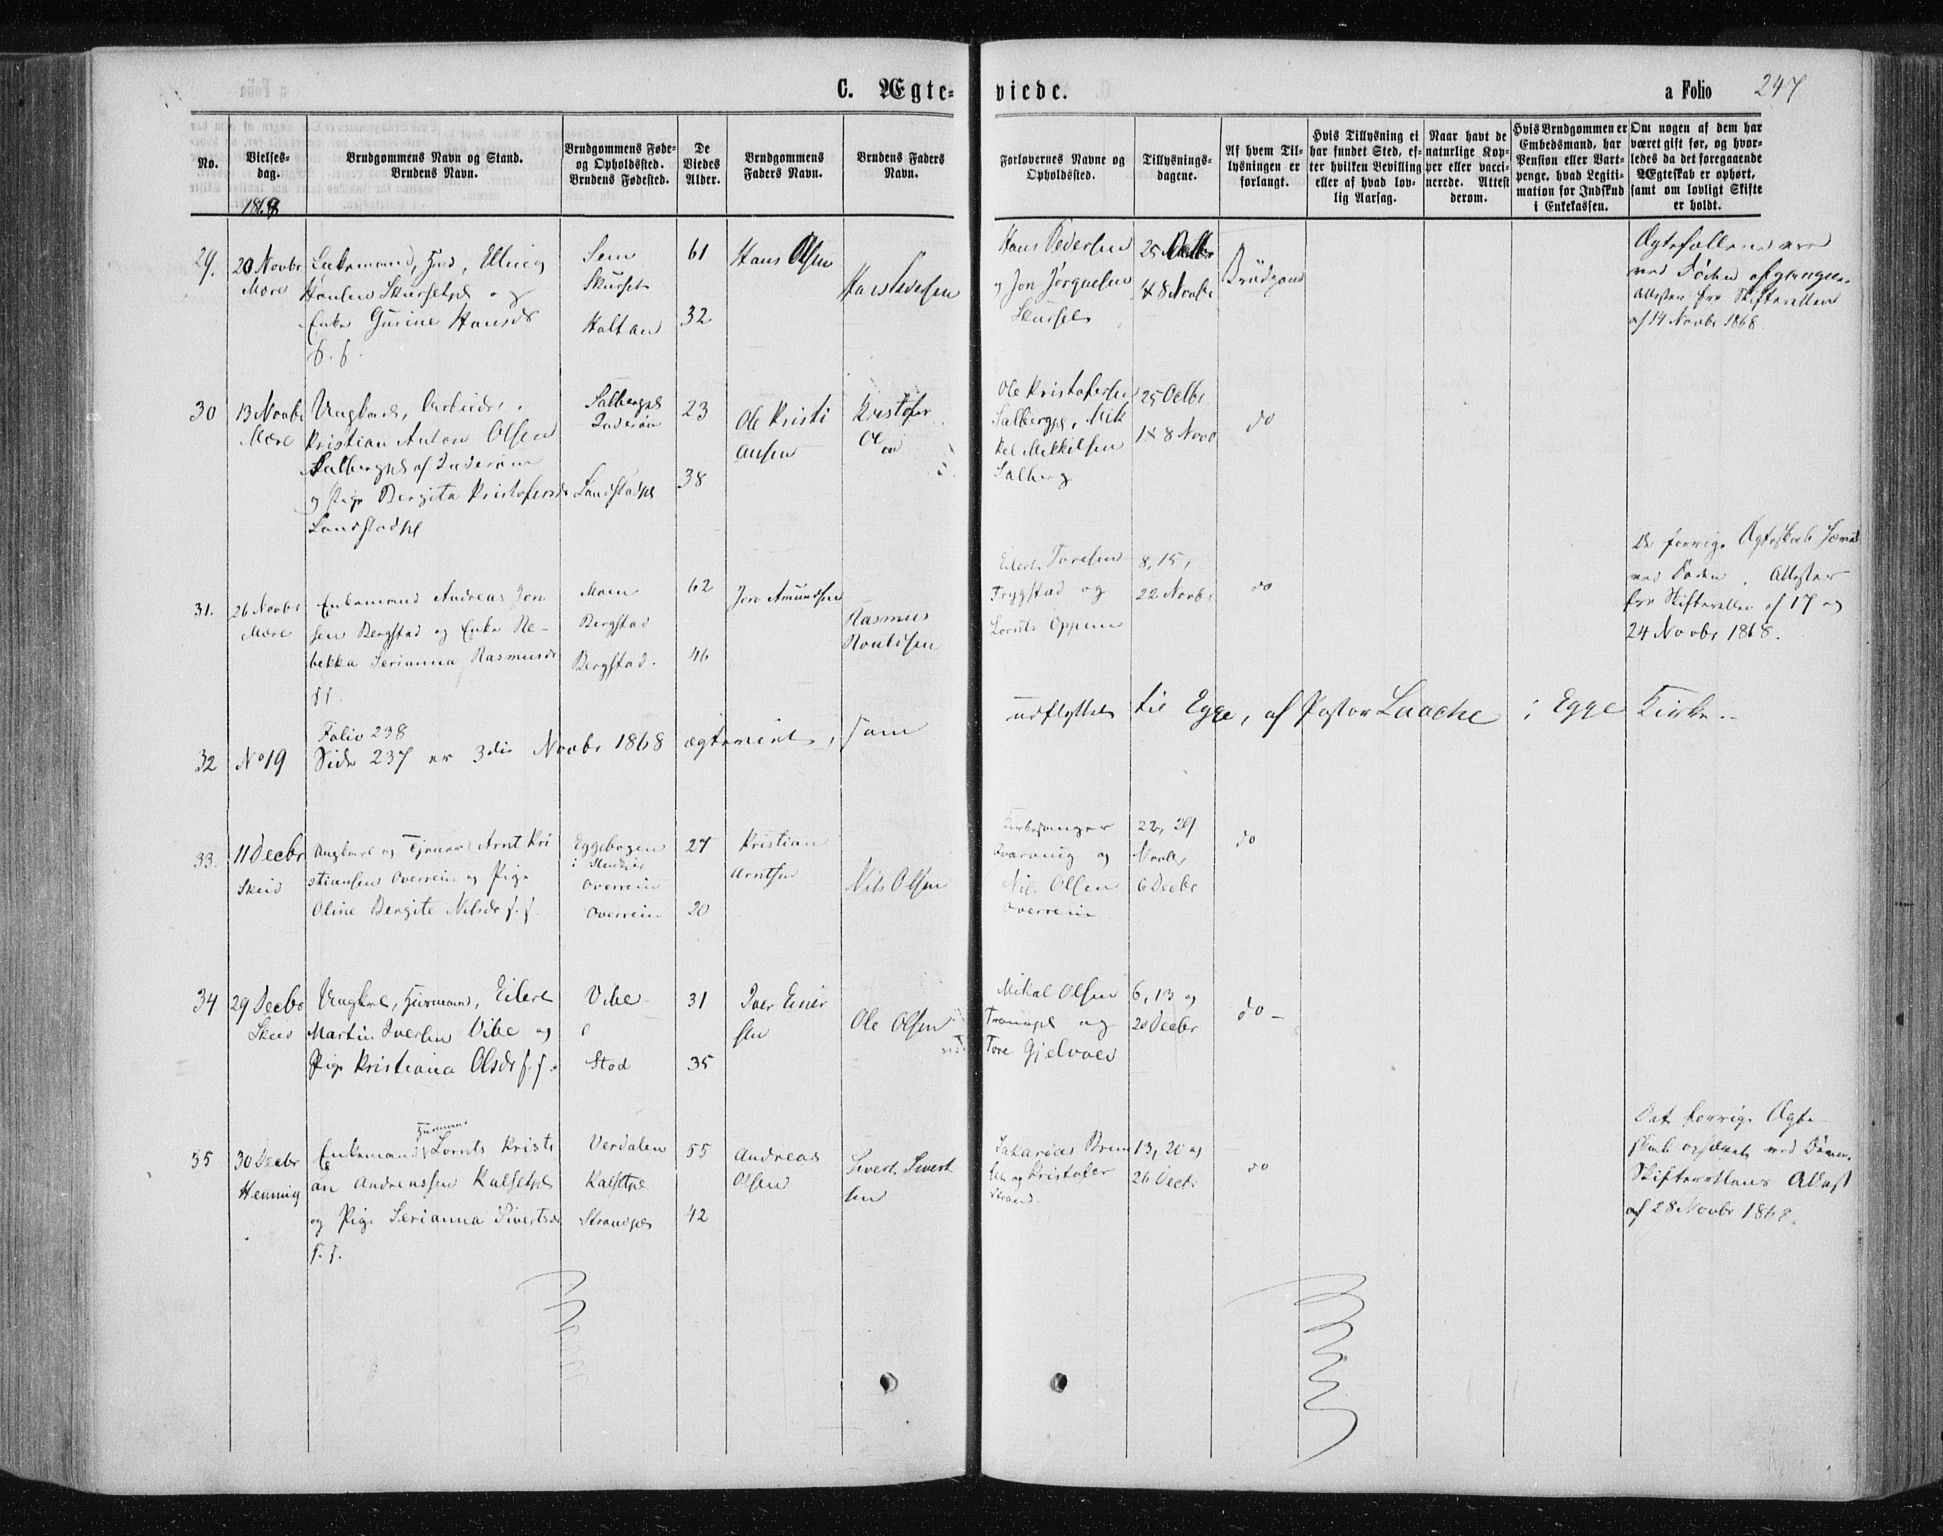 C. Ægte-
viede.
a Folio 247
No.
Vielses-
dag.
Brudgommens Navn og Stand.
Brudens Navn.
Brudgommens Føde-
og Opholdssted.
Brudens Fødested.
De
Viedes
Alder.
Brudgommens
Faders Navn.
Brudens Faders
Navn.
Forlovernes Navne og
Opholdssted.
Tillysnings-
dagene.
Af hvem Til-
lysningen er
forlangt.
Hvis Tillysning ei
har fundet Sted, ef-
ter hvilken Bevilling
eller af hvad lov-
lig Aarsag.
Naar havt de
naturlige Kop-
per eller vacci-
nerede. Attest
derom.
Hvis Brudgommen er
Embedsmand, har
Pension eller Vart-
penge, hvad Legiti-
mation for Indskud
i Enkekassen.
Om nogen af dem har
været gift før, og hvor-
ledes da det foregaaende
Ægteskab er ophørt,
samt om lovligt Skifte
er holdt.
1868
29.
20 Novbr
Mære
Enkemand, Elling
Hansen Skurset og
Enke Gurine Hansd
f. f.
Sem
Skurset
Holtan
61
32
Hans Olsen
Hans Pedersen
og Jon Jørgensen
Skurset
25 Octbr
1 & 8 Novbr
Brudgom
Ægtefællerne ere
ved Døden afgangne.
Attester fra Skifteretten
af 14 Novbr 1868
30
13 Novbr
Mære
Ungkarl, Arbeider,
Kristian Anton Olsen
Salbergpl af Inderøen
og Pige Bergita Kristofersd
Landstadpl
Salbergpl
Inderøen
Landstadpl
23
38
Ole Kristi
ansen
Kristofer
Ole Kristofersen
Salbergpl, Mik
kel Mikkelsen
Salberg
25 Octbr
1 & 8 Novb
do
31.
26 Novbr
Mære
Enkemand Andreas Jon
sen Bergstad og Enke Re-
bekka Serianna Rasmusd
f f.
Moen
Bergstad
Bergstad.
62
46
Jon Amundsen
Rasmus
Eilert Toresen
Trygstad og
Lornts Oppem
8, 15,
22 Novb.
do
De forrige Ægteskab hævet
ved Døden. Attester
fra Skifteretten af 17 og
24 Novbr 1868.
32
No 19
Folio 238
Side 237 er 3die Novbr 1868 ægteviet, som
udflyttet til Egge, af Pastor Laache i Egge Kirke.
33.
11 Decbr
Skeid
Ungkarl og Tjener Arnt Kri
stiansen Overrein og Pige
Oline Bergite Nilsdr f. f.
Eggebogen
i Stenkjær
Overrein
Overrein
27
20
Kristian
Arntsen
Nils Olsen
Kirkesanger
Kvarving og
Nils Olsen
Overrein
22, 29
Novbr
6 Decbr
do
34
29 Decbr
Skeid
Ungkarl, Husmand, Eilert
Martin Iversen Vibe og
Pige Kristiana Olsdr f. f.
Vibe
Stod
31
35
Iver Einer
sen
Ole Olsen
Mikal Olsen
Tranapl og
Tore Gjelvold
6, 13 og
20 Decbr
do -
35
30 Decbr
Henning
Husmand
Enkemand Lornts Kristi
an Andreassen Kalsetpl
og Pige Serianna Sivertsd
f. f.
Verdalen
Kalsetpl
Strandpl
55
42
Andreas
Olsen
Sivert Sivert
sen
Sakarias Brem
og Kristofer
Strand.
13, 20 og
26 Decb
do
Det forrige Ægte-
skab ophævet ved Døden.
Skifterettens Attest
af 28 Novbr 1868.